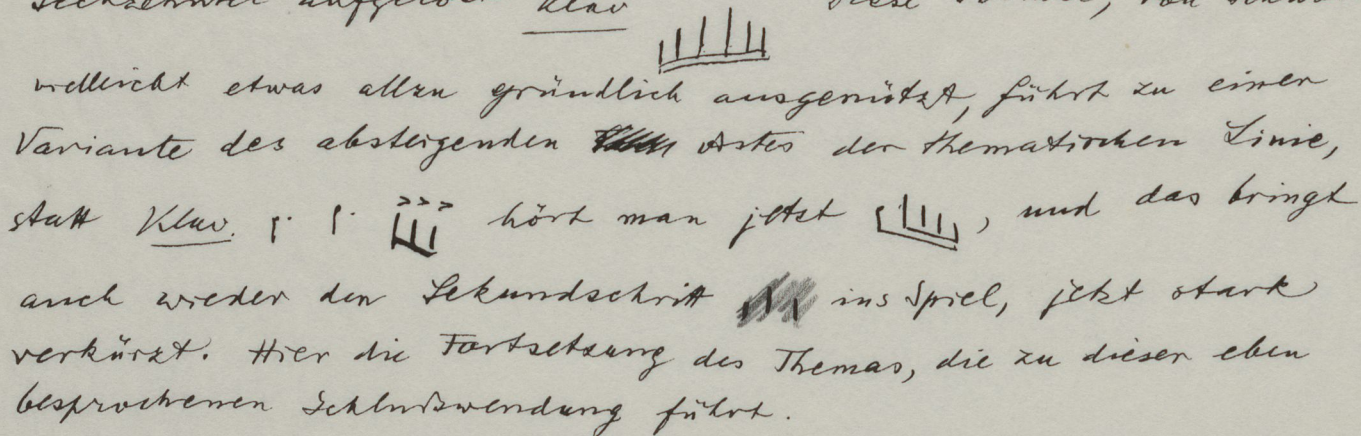 aufgelöst Klav diese
vielleicht etwas allzu gründlich ausgenützt, führt zu einer
Variante des absteigenden Astes der thematischen Linie,
statt Klav. hört man jetzt , und das bringt
auch wieder den Sekundschritt ins Spiel, jetzt stark
verkürzt. Hier die Fortsetzung des Themas, die zu dieser eben
besprochenen Schlußwendung führt.